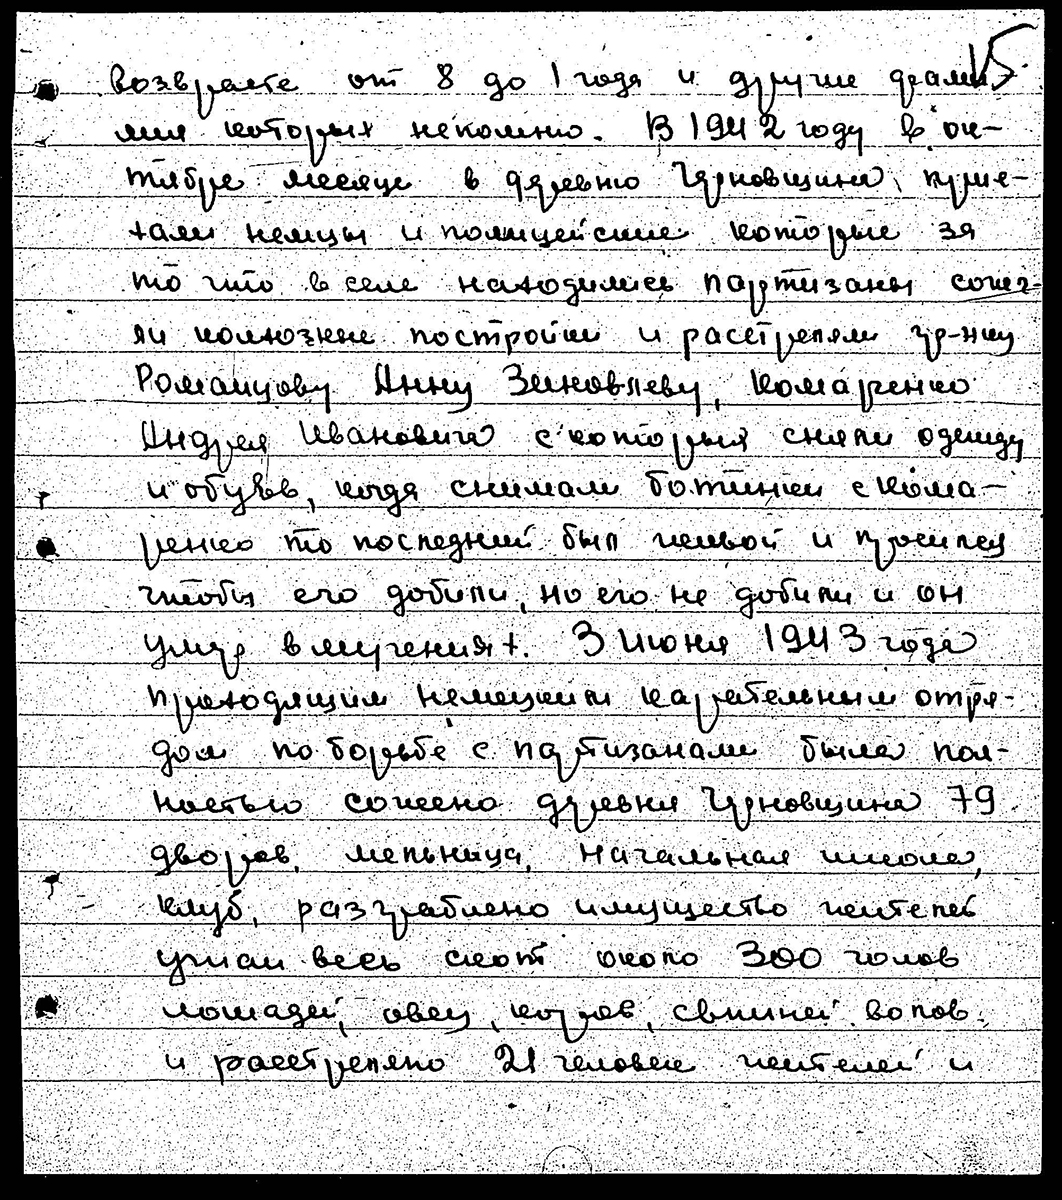 15
возврасте от 8 до 1 года и другие фами
лия которых непомню. В 1942 году в ок-
тябре месяце в деревню Черновщина, прие-
хали немцы и полицейские которые за
то что в селе находились партизаны сожг-
ли колхозные постройки и расстреляли гр-нку
Романцову Анну Зиновлеву, Комаренко
Андрея Ивановича с которых сняли одежду
и обувь, когда снимали ботинки с Кома-
ренко то последний был живой и просился
чтобы его добили, но его не добили и он
умер в мучениях. 3 июня 1943 года
проходящим немецким карательным отря-
дом по борьбе с партизанами была пол-
ностью сожжена деревня Черновщина 79
дворов, мельница, начальная школа,
клуб, разграблено имущество жителей
угнали весь скот около 300 голов
лошадей, овец, коров, свиней волов
и расстреляно 21 человек жителей и